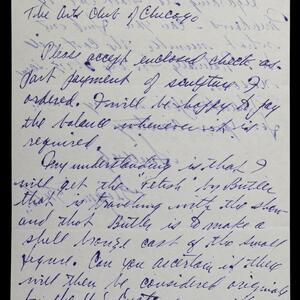 The Arts Club of Chicago
Please accept enclosed check as
part payment of sculpture I
ordered. I will be happy to pay
the balance whenever it is
required.
My understanding is that I
will get the "fetish" by Butler
that is traveling with the show
and that Butler is to make a
shell bronze cast of the small
figure. Can you ascertain if they
will then be considered originals
by the U.S. Customs